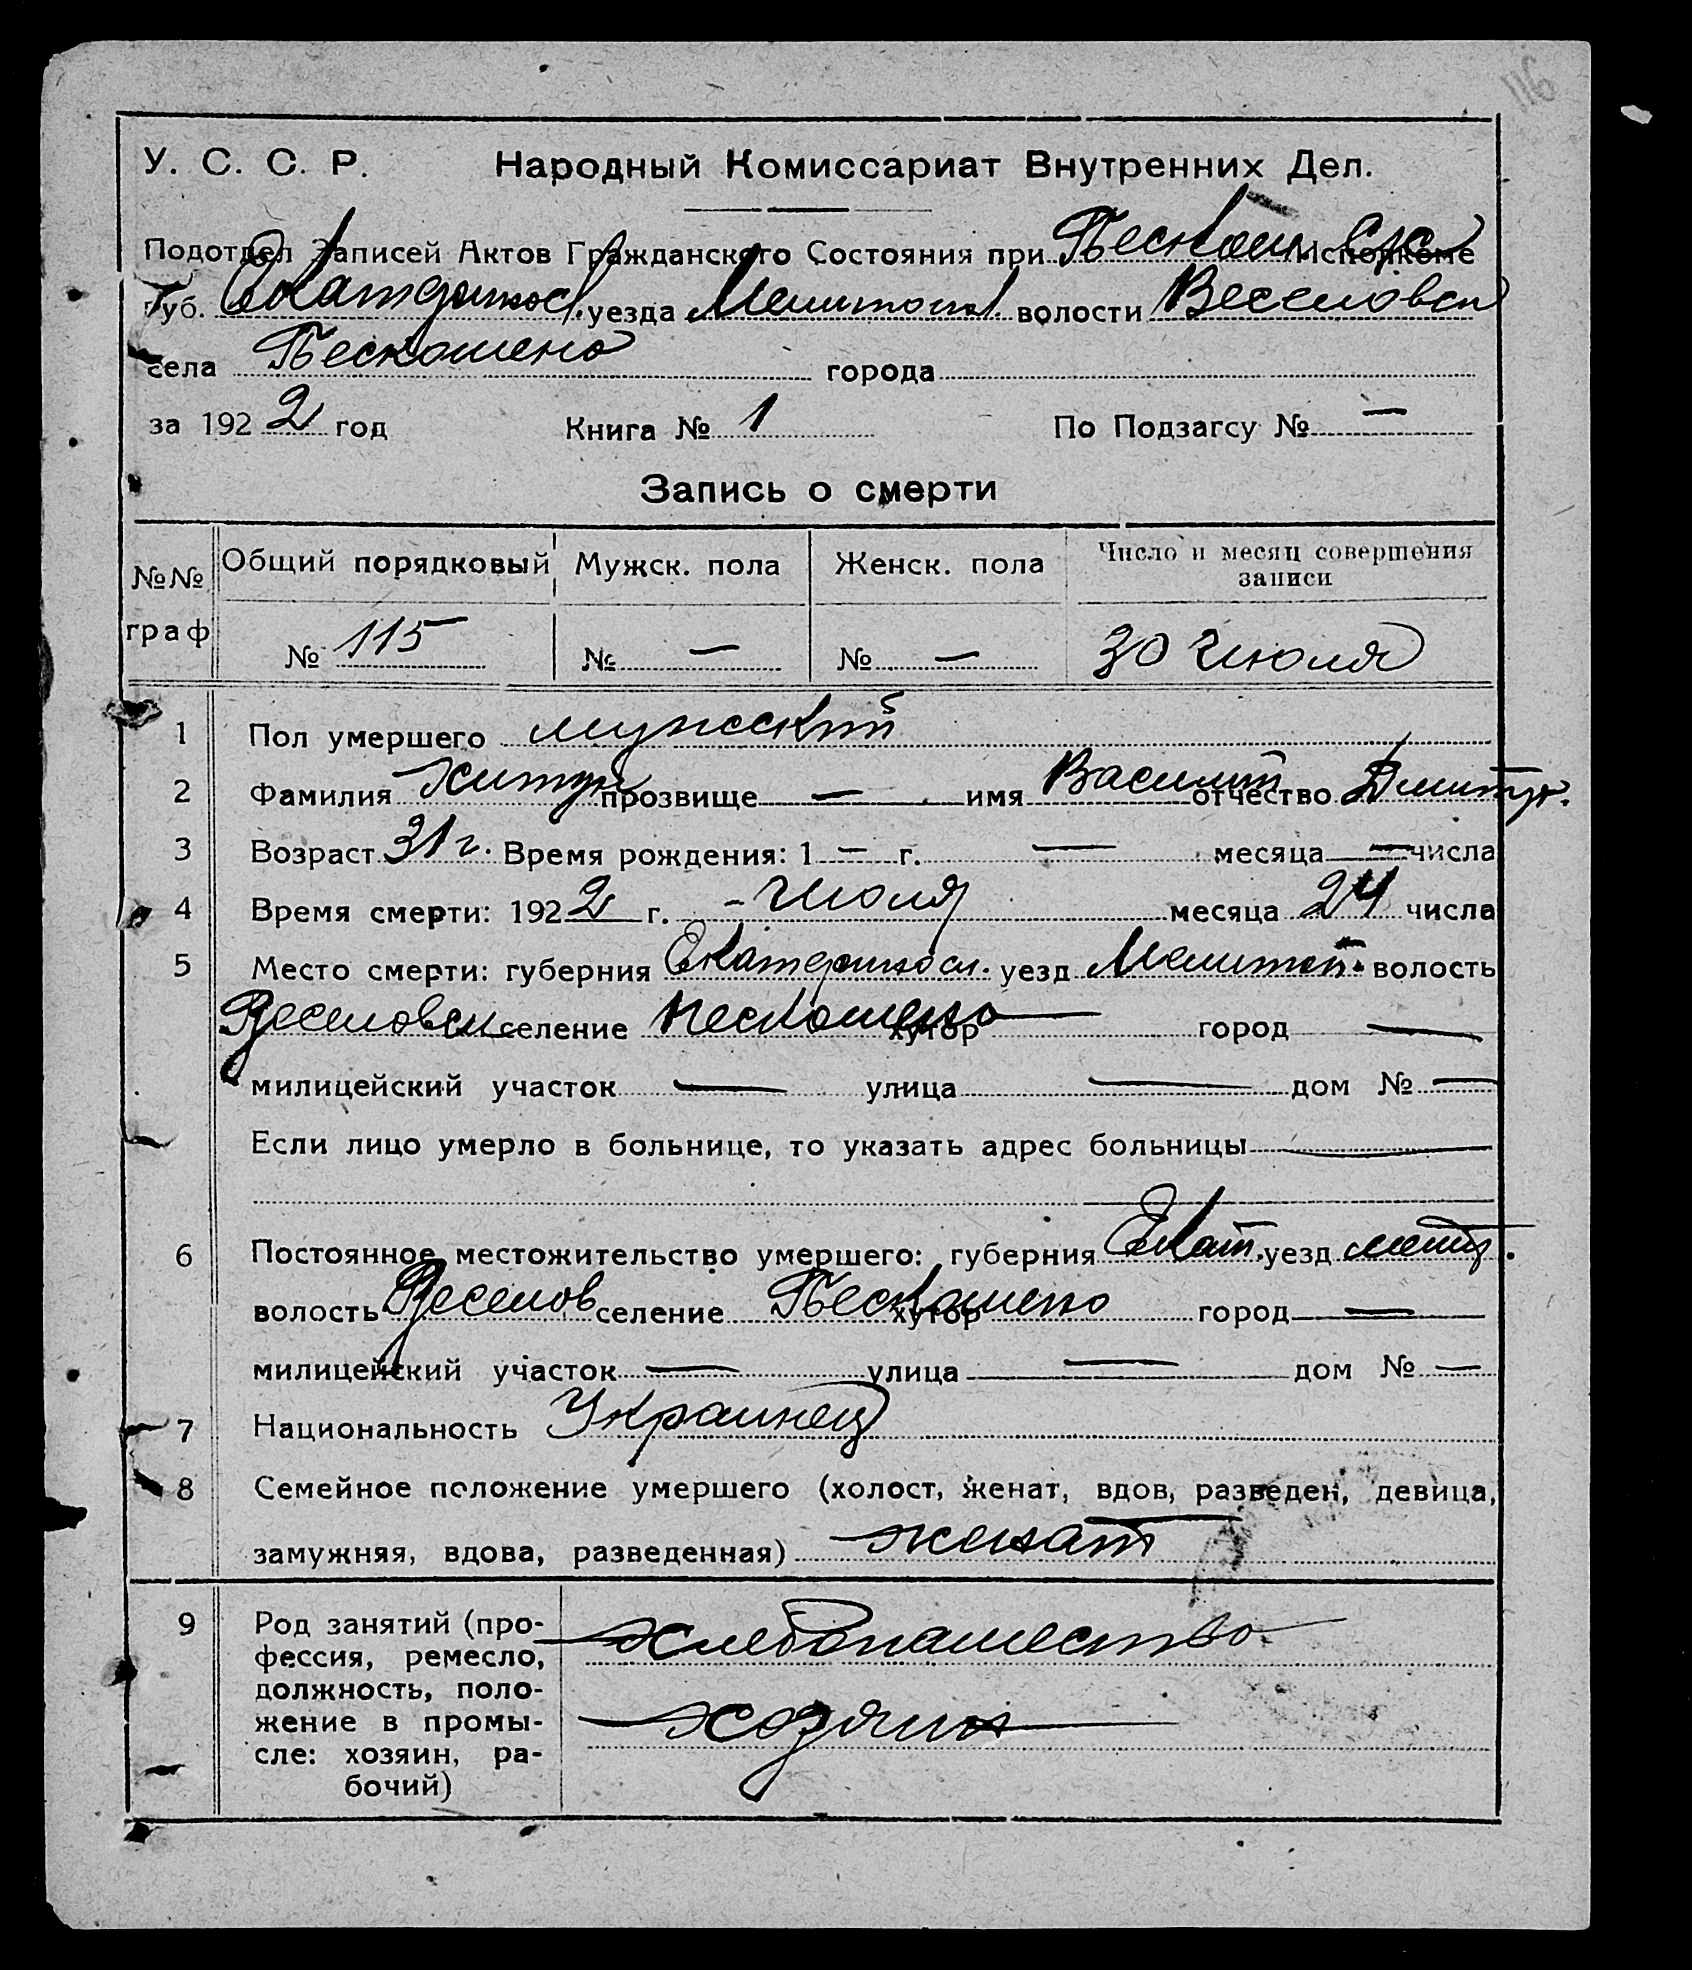 116
У. С. С. Р. Народный Комиссариат Внутренних Дел.
Подотдел Записей Актов Гражданского Состояния при Пескош. Исполкоме
Губ. Екатеринос. уезда Мелитоп. волости Веселовск
села Пескошено города
за 1922 год Книга № 1 По Подзагсу № —
Запись о смерти
№№ граф Общий порядковый Мужск. пола Женск. пола Число и месяц совершения записи
№ 115 № — № — 30 Июля
1 Пол умершего мужский
2 Фамилия прозвище — имя Василий отчество Дмитр.
3 Возраст 31 г. Время рождения: 1 — г. — месяца — числа
4 Время смерти: 1922 г. - Июля месяца 24 числа
5 Место смерти: губерния Екатеринosл. уезд Мелитоп. волость
Веселовск селение Пескошено хутор город —
милицейский участок — улица — дом № —
Если лицо умерло в больнице, то указать адрес больницы —
6 Постоянное местожительство умершего: губерния Екат. уезд мелит.
волость Веселов селение Пескошено хутор город —
милицейский участок — улица — дом № —
7 Национальность Украинец
8 Семейное положение умершего (холост, женат, вдов, разведен, девица,
замужняя, вдова, разведенная) женат
9 Род занятий (про-
фессия, ремесло,
должность, поло-
жение в промы-
сле: хозяин, ра-
бочий)
хлебопашество
хозяин